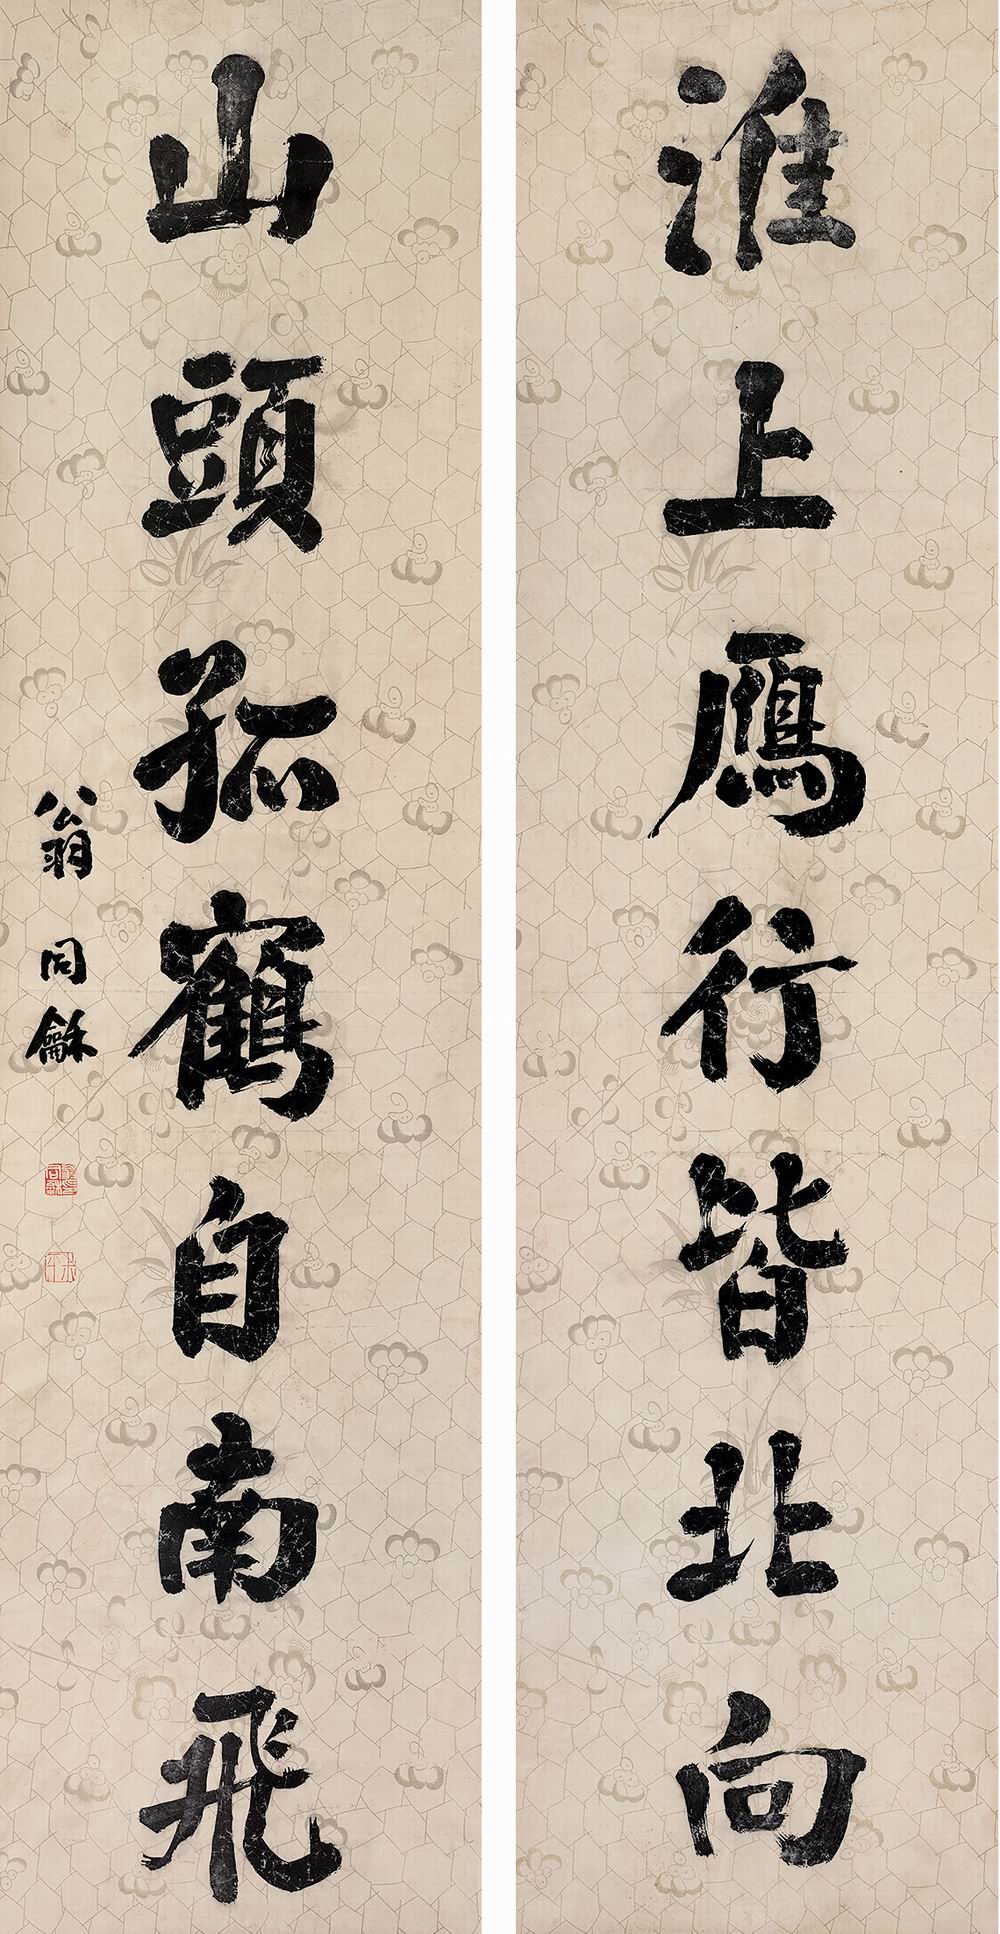 淮上鴈行皆北向
山頭孤鶴自南飛
翁同龢
叔平